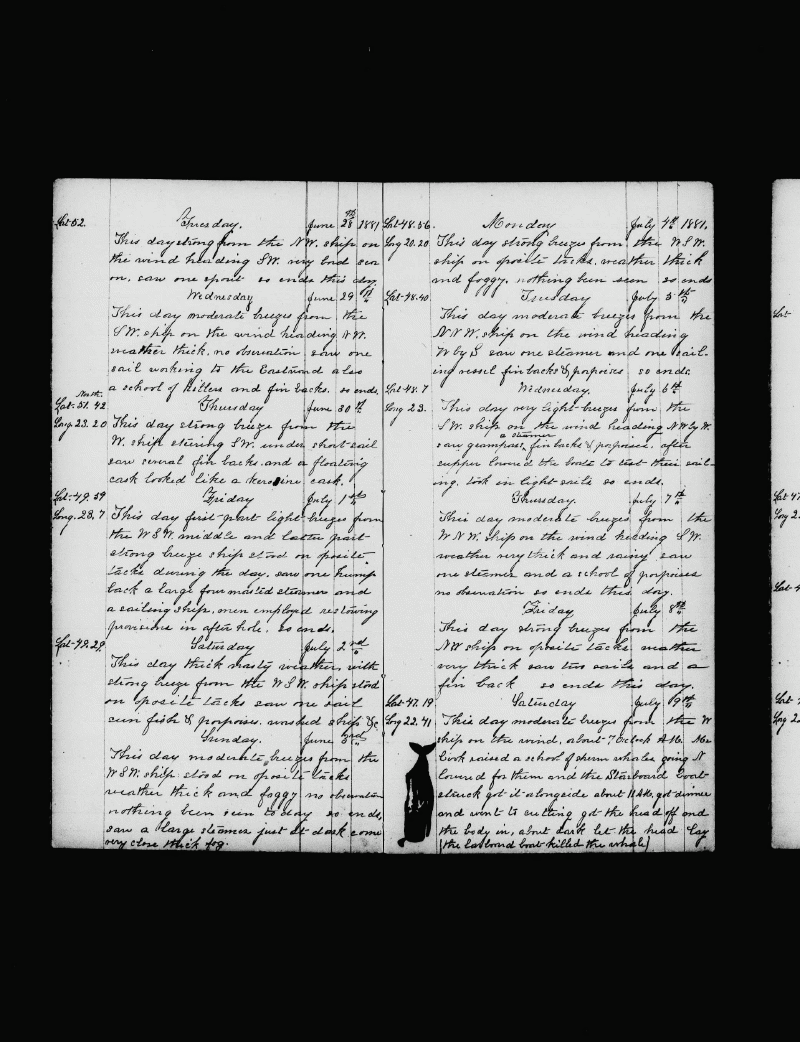 Lat-52. Tuesday. June 28th 1881
This day strong from the N.W. ship on
the wind heading S.W. very bad sea
on, saw one spout so ends this day.
Wednesday June 29th
This day moderate breezes from the
S.W. ship on the wind heading N.W.
weather thick, no observation saw one
sail working to the Eastward also
a school of killers and fin backs. so ends.
North.
Lat-51.42 Thursday June 30th
Long.23.20 This day strong breeze from the
W. ship stering S.W. under short sail
saw several fin backs. and a floating
cask looked like a kerosine cask.
Lat-49.59 Friday July 1st
Long.23.7 This day first-part light-breezes from
the W.S.W. middle and latter part
strong breeze ship stood on oposite
tacks during the day, saw one hump
back a large four masted steamer and
a sailing ship, men employed restowing
provisions in after hole. so ends.
Lat-49.29 Saturday July 2nd
This day thick nasty weather, with
strong breeze from the W.S.W. ship stood
on oposite tacks saw one sail
sun fish & porpoises. washed ship &c
Sunday. June 3rd
This day moderate breezes from the
W.S.W. ship stood on oposite tacks
weather thick and foggy no observation
nothing been seen today so ends,
saw a large steamer just at dark come
very close thick fog.
Lat-48.56. Monday July 4th 1881.
Long 20.20 This day strong breezes from the W.S.W.
ship on oposite tacks, weather thick
and foggy, nothing been seen so ends
Lat-48.40. Tuesday July 5th
This day moderate breezes from the
N.N.W. ship on the wind heading
W by S saw one steamer and one sail-
ing vessel fin backs & porpoises so ends.
Lat-48.7 Wednesday. July 6th
Long 23. This day very light-breezes from the
S.W. ship on the wind heading N.W by W.
a steamer
saw grampass, fin backs & porpoises. after
supper lowerd the boats to test their sail-
ing. took in light sails so ends.
Thursday. July 7th
This day moderate breezes from the
W.N.W. ship on the wind heading S.W.
weather very thick and rainy saw
one steamer and a school of porpoises
no observation so ends this day.
Friday July 8th
This day strong breezes from the
N.W. ship on oposite tacks weather
very thick saw two sails and a
fin back so ends this day.
Lat-47.19 Saturday July 9th
Long 22.41 This day moderate breezes from the W
ship on the wind, about 7 Oclock A.M. Mr
Cook raised a school of sperm whales going N
lowered for them and the Starboard boat
struck got it alongside about 11 A.M. got dinner
and went to cutting got the head off and
the body in, about dark let the head lay
(the larboard boat killed the whale)
Lat-
Lat 47
Long 2
Long 2